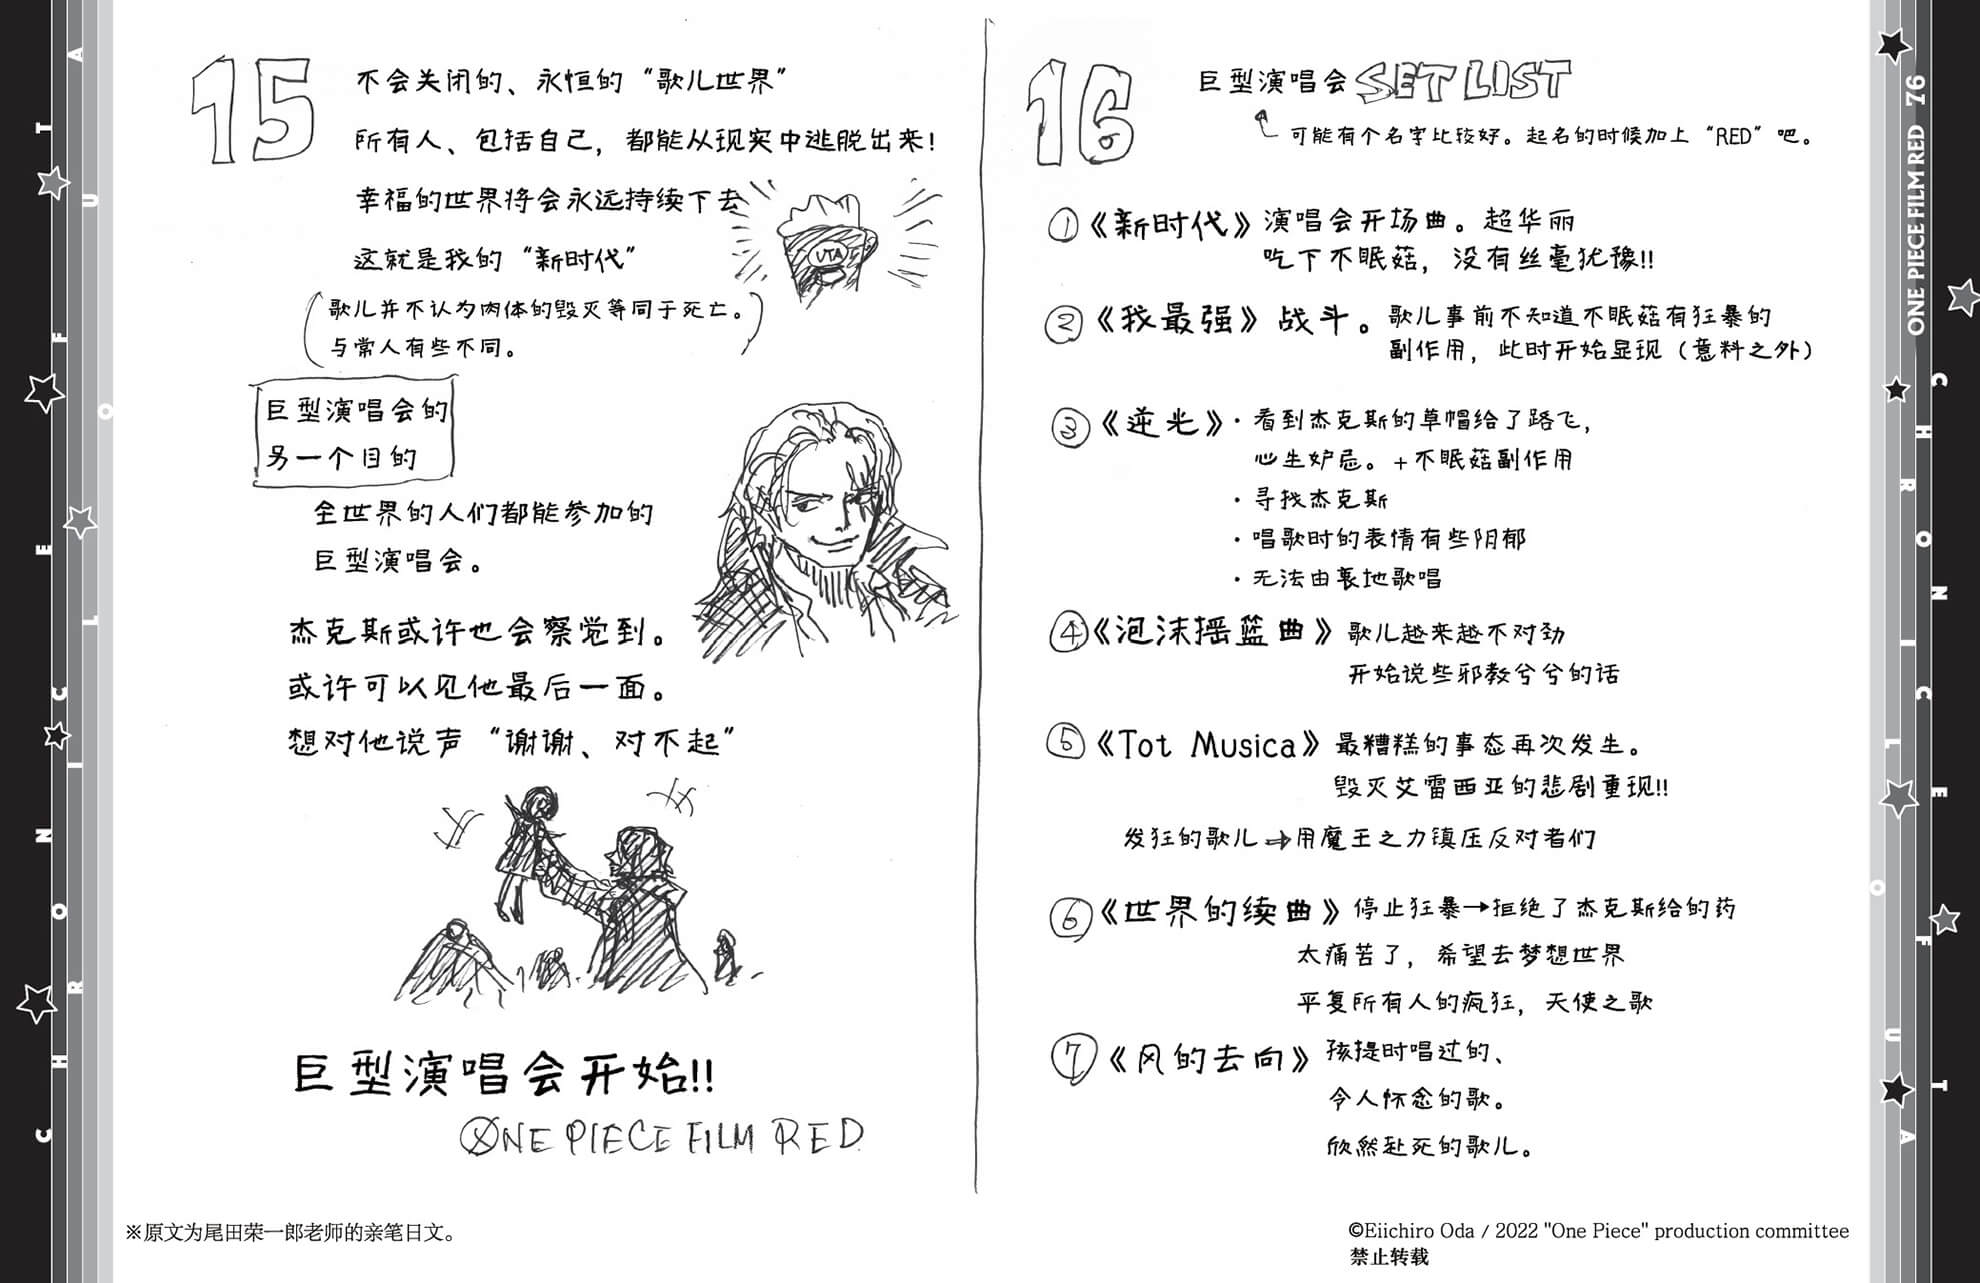 15
不会关闭的、永恒的“歌儿世界”
所有人、包括自己，都能从现实中逃脱出来！
幸福的世界将会永远持续下去
这就是我的“新时代”
UTA
（歌儿并不认为肉体的毁灭等同于死亡。
与常人有些不同。）
巨型演唱会的
另一个目的
全世界的人们都能参加的
巨型演唱会。
杰克斯或许也会察觉到。
或许可以见他最后一面。
想对他说声“谢谢、对不起”
巨型演唱会开始!!
ONE PIECE FILM RED
※原文为尾田荣一郎老师的亲笔日文。
16
巨型演唱会 SET LIST
可能有个名字比较好。起名的时候加上“RED”吧。
①《新时代》演唱会开场曲。超华丽
吃下不眠菇，没有丝毫犹豫!!
②《我最强》战斗。歌儿事前不知道不眠菇有狂暴的
副作用，此时开始显现（意料之外）
③《逆光》·看到杰克斯的草帽给了路飞，
心生妒忌。+不眠菇副作用
·寻找杰克斯
·唱歌时的表情有些阴郁
·无法由衷地歌唱
④《泡沫摇篮曲》歌儿越来越不对劲
开始说些邪教兮兮的话
⑤《Tot Musica》最糟糕的事态再次发生。
毁灭艾雷西亚的悲剧重现!!
发狂的歌儿⇒用魔王之力镇压反对者们
⑥《世界的续曲》停止狂暴→拒绝了杰克斯给的药
太痛苦了，希望去梦想世界
平复所有人的疯狂，天使之歌
⑦《风的去向》孩提时唱过的、
令人怀念的歌。
欣然赴死的歌儿。
©Eiichiro Oda / 2022 "One Piece" production committee
禁止转载
ONE PIECE FILM RED 76
CHRONICLE OF UTA
CHRONICLE OF UTA